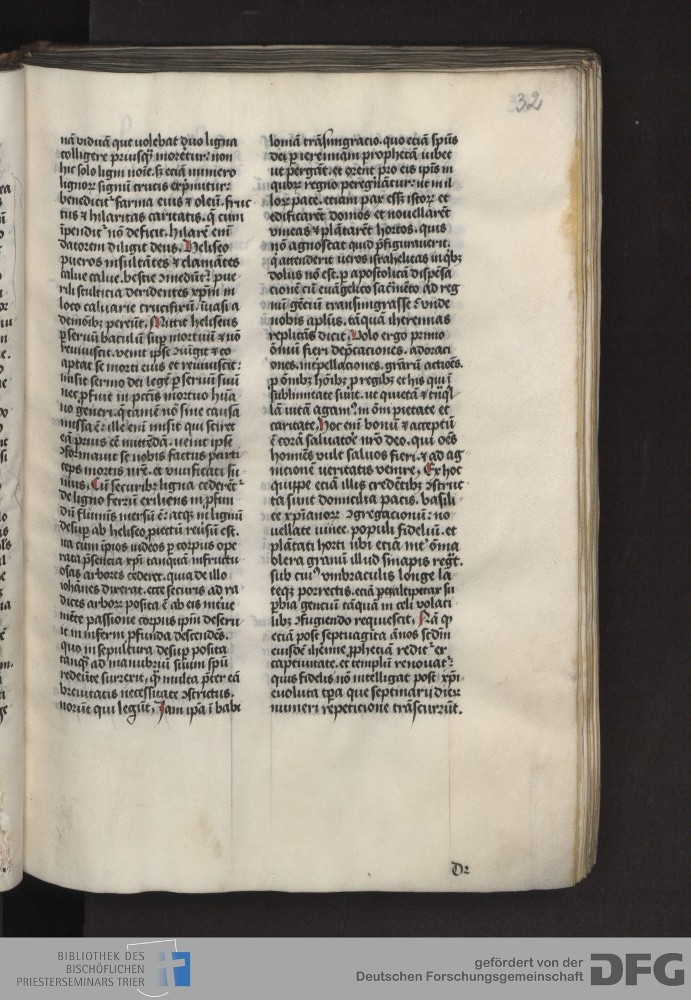 32
nā viduā que uolebat duo ligna
colligere priusq̄ morēetur: non
hic solo ligni noīe. sꝫ eciā numero
lignoꝝ signū crucis exp̄mitur:
benedicit᷑ farina eius ⁊ oleū. fruc
tus ⁊ hilaritas caritatis. q̄ cum
īpendit᷑ nō deficit. hilarē enī
datorem diligit deus. Heliseo
pueros insultātes ⁊ clamātes
calue calue. bestie ꝯmedūt᷑ pue
rili stulticia deridentes xp̄m in
loco caluarie crucifixū. īuasi a
demōibꝫ pereūt. Mittit heliseus
ꝑ seruū baculū suꝑ mortuū ⁊ nō
reuiuiscit. venit ip̄e ꝯiūgit ⁊ co
aptat se morti eius et reuiuiscit:
misit sermo dei legē ꝑ seruū suū
nec ꝓfuit in pctīs mortuo hūa
no generi. q̄ tamē nō sine causa
missa ē: ille enī misit qui sciret
eā prius eē mittēdā. uenit ipse
ꝯformauit se nobis factus parti
ceps mortis nr̄e. et viuificati su
mus. Cū securibꝫ ligna cederēt᷑
de ligno ferrū exiliens in ꝓfun
dū fluminis mersū ē: atqꝫ in lignū
desuꝑ ab heliseo ꝓiectū reuersū est.
ita cum īpios iudeos ꝑ corpus ope
rata p̄sencia xp̄i tanquā infructu
osas arbores cederet. quia de illo
iohānes dixerat. ecce securis ad ra
dices arboꝝ posita ē ab eis īteruē
iēte passione corpus ip̄m deseru
it in inferni ꝓfunda descendēs.
quo in sepultura desuꝑ posita
tanq̄ ad manubriū suum sp̄ū
redeūte surrexit. q̄ multa p̄ter eā
breuitatis necessitate ꝯstrictus.
norūt qui legūt. Jam ip̄a ī babi
loniā trāsmigracio. quo eciā sp̄us
dei ꝑ ieremiam prophetā iubet
ut ꝑgāt. et orent pro eis ip̄is in
quoꝝ regno peregrinātur: ut in il
loꝝ pace. etiam pax eēt istoꝝ et
edificarēt domos et nouellarēt
vineas ⁊ plātarēt hortos. quis
nō agnoscat quid p̄figurauerit.
q̄ attenderit ueros israhelitas in qⁱbꝫ
dolus nō est. ꝑ apostolicā dispēsa
cionē cū euāgelico sacr̄mēto ad reg
nū gēciū transmigrasse ⁊ unde
nobis apl̄us. tāquā iheremias
replicās dicit. Volo ergo primo
ōniū fieri dep̄caciones. adoraci
ones. int̄pellaciones. gr̄arū actiōēs.
ꝑ ōnibꝫ hoīnibꝫ ꝑ regibꝫ et his qui ī
sublimitate sunt. ut quietā ⁊ trāqⁱl
lā uitā agamꝰ. in ōni pietate et
caritate. Hoc enī bonū ⁊ acceptū
ē corā saluatore nr̄o deo. qui oēs
homīes vult saluos fieri. ⁊ ad ag
nicionē ueritatis venire. Ex hoc
quippe eciā illis credētibꝫ ꝯstruc
ta sunt domicilia pacis. basili
ce xp̄ianoꝝ ꝯgregacionū: no
uellate vinee populi fidelium. et
plātati horti ubi eciā int̄ ōnia
olera granū illud sinapis regt̄.
sub cuiꝰ vmbraculis longe la
teqꝫ porrectis. eciā
ꝑbia gencium tāquā in celi volati
libꝫ ꝯfugiendo requiescit. Nā q̄
eciā post septuagīta ānos sedm̄
eiusdē iheremie ꝓphetiā redit᷑ ex
captiuitate. et templū renouat᷑:
quis fidelis nō intelligat post xp̄i
euoluta tp̄a que septenarij dieꝝ
numeri repeticione trāscurrūt.
BIBLIOTHEK DES
BISCHÖFLICHEN
PRIESTERSEMINARS TRIER
gefördert von der
Deutschen Forschungsgemeinschaft
DFG